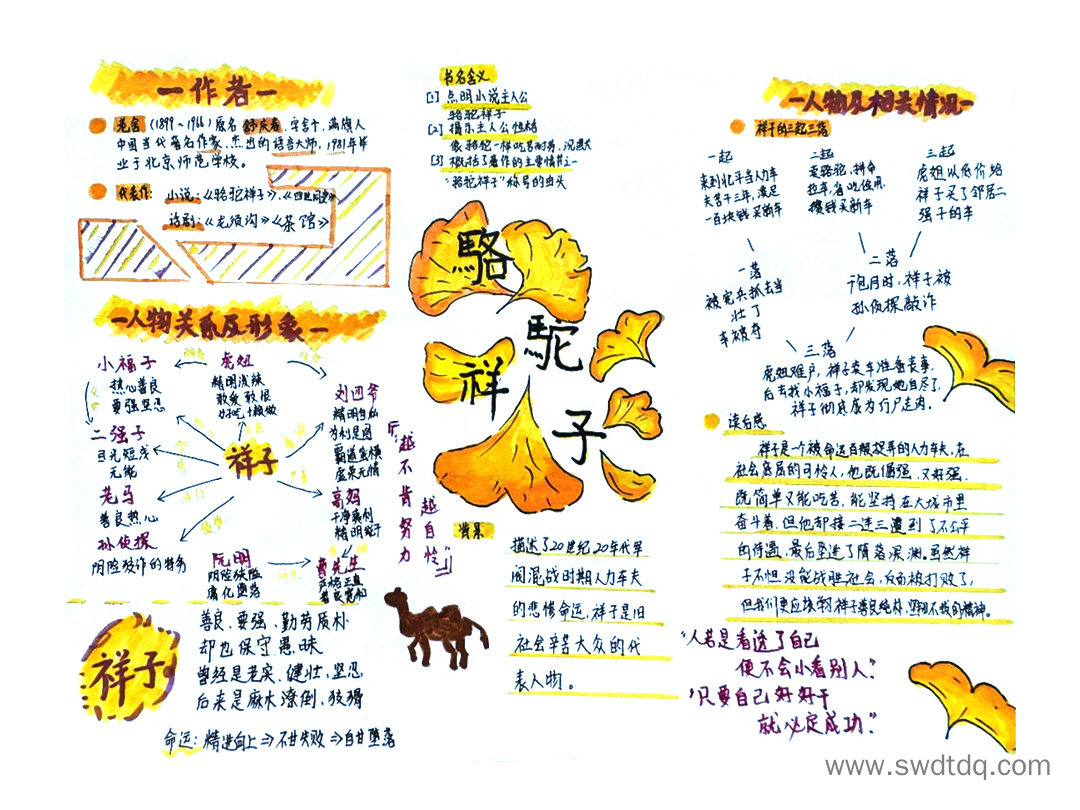 一作者一
老舍(1899~1966)原名舒庆春,字舍予,满族人
中国当代著名作家,杰出的语言大师,1981年毕
业于北京师范学校。
代表作:小说:《骆驼祥子》、《四世同堂》
话剧:《龙须沟》《茶馆》
一人物关系及形象一
小福子
热心善良
要强坚忍
虎妞
精明泼辣
敢爱敢恨
好吃懒做
刘四爷
精明自私
为利是图
霸道蛮横
虚荣无情
二强子
目光短浅
无能
祥子
老马
善良热心
高妈
干净爽利
精明能干
孙侦探
阴险狡诈的特务
阮明
阴险狭隘
腐化堕落
曹先生
严格正直
善良宽和
祥子
善良、要强、勤劳质朴
却也保守愚昧
曾经是老实、健壮、坚忍
后来是麻木潦倒、狡猾
命运:精进向上⇒不甘失败⇒自甘堕落
书名含义
[1] 点明小说主人公
骆驼祥子
[2] 揭示主人公性格
像骆驼一样吃苦耐劳、沉默
[3] 概括了著作的主要情节之一
“骆驼祥子”称号的由头
駱
駝
祥
子
『越不肯努力
越自怜』
背景
描述了20世纪20年代军
阀混战时期人力车夫
的悲惨命运,祥子是旧
社会辛苦大众的代
表人物。
一人物及相关情况一
祥子的三起三落
一起
来到北平当人力车
夫苦干三年,凑足
一百块钱买新车
二起
卖骆驼,拼命
拉车,省吃俭用
攒钱买新车
三起
虎妞以低价给
祥子买了邻居二
强子的车
一落
被宪兵抓去当
壮丁
车被夺
二落
干包月时,祥子被
孙侦探敲诈
三落
虎妞难产,祥子卖车准备丧事,
后去找小福子,却发现她自尽了,
祥子彻底成为行尸走肉。
读后感
祥子是一个被命运百般捉弄的人力车夫,在
社会底层的可怜人,他既倔强,又好强,
既简单又能吃苦,能坚持在大城市里
奋斗着,但他却接二连三遭到了不公平
的待遇,最后坠进了堕落深渊。虽然祥
子不但没能战胜社会,反而被打败了,
但我们更应该学祥子善良纯朴,坚韧不拔的精神。
“人若是看透了自己
便不会小看别人”
“只要自己好好干
就必定成功”
www.swdtdq.com